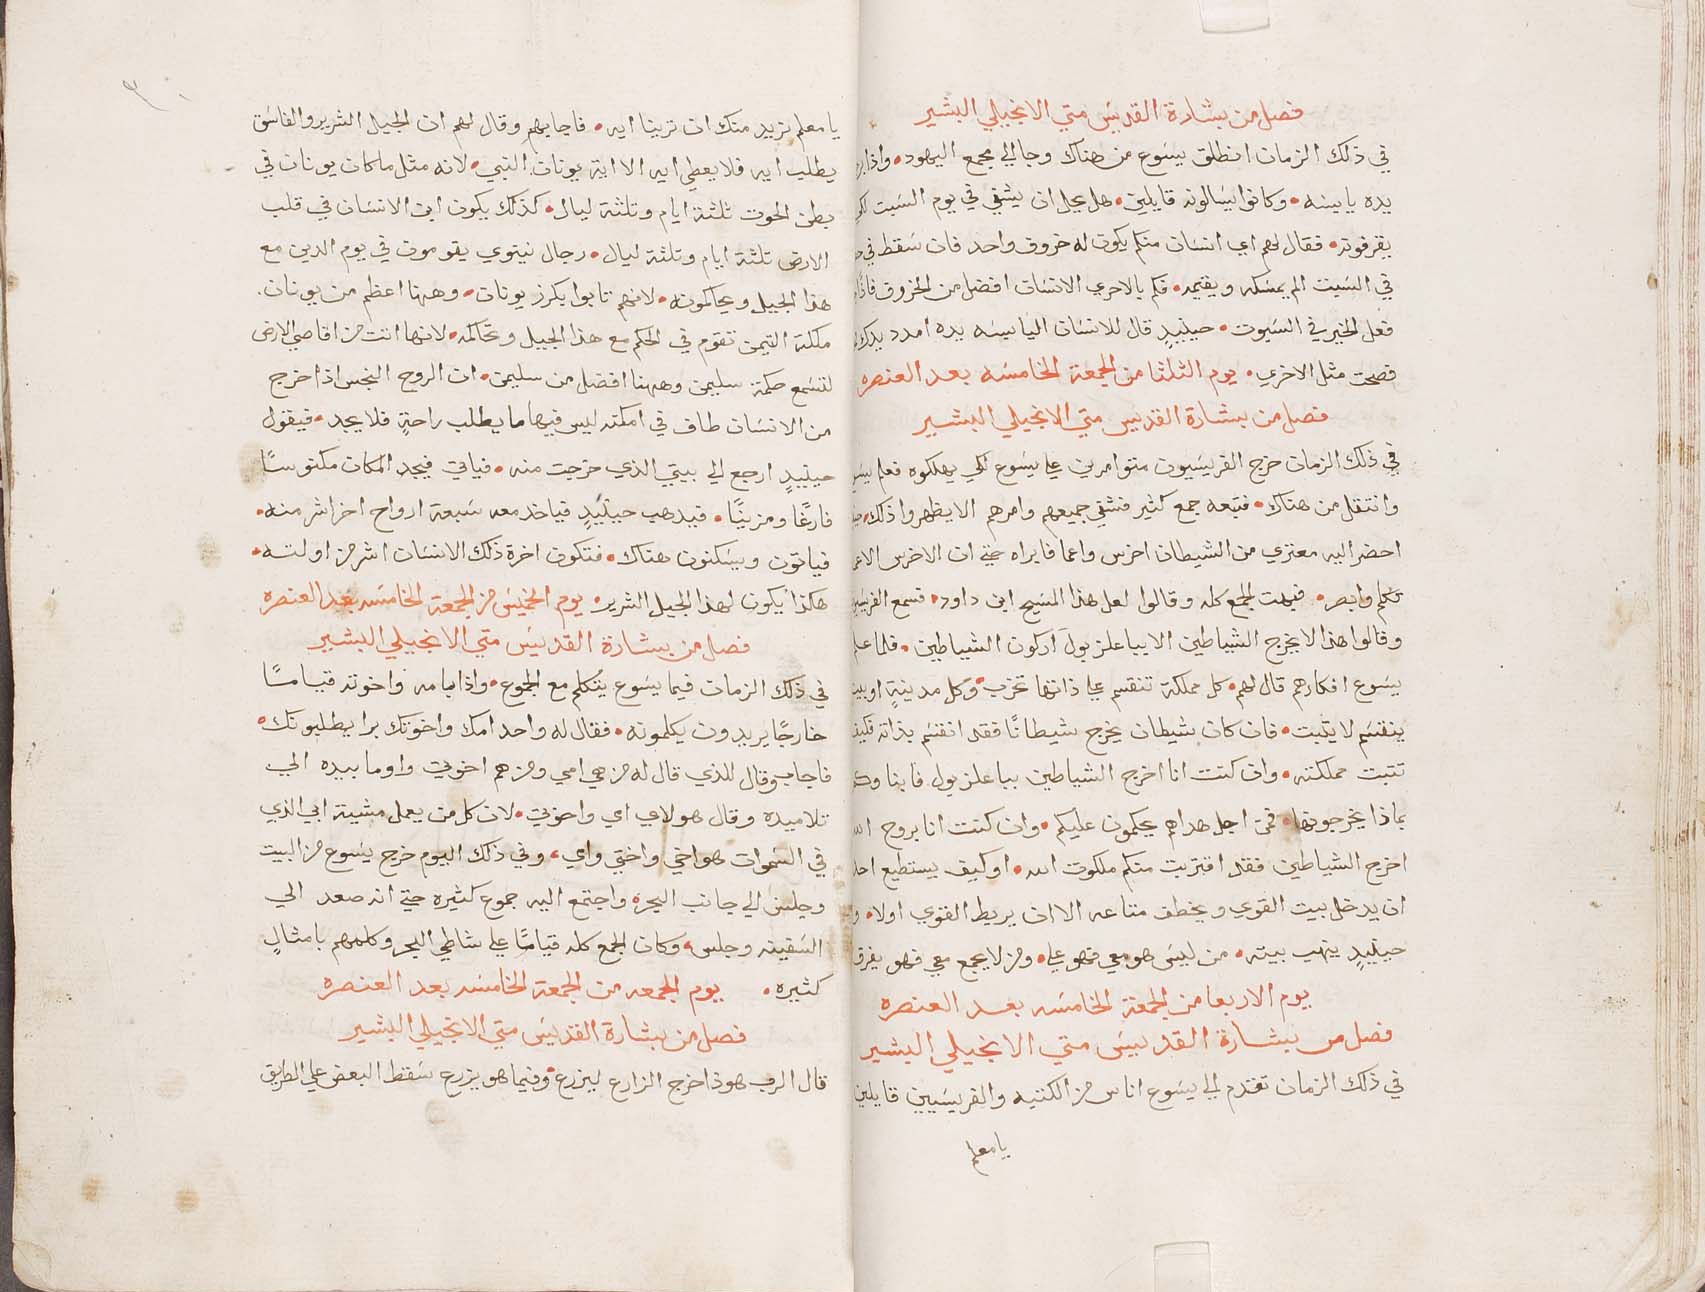 فصل من بشارة القديس متي الانجيلي البشير
في ذلك الزمان انطلق يسوع من هناك وجا الي مجمع اليهود • واذا
يده يابسه • وكانوا يسالونه قايلين • هل يحل ان يشفي في يوم السبت لكي
يقرفونه • فقال لهم اي انسان منكم يكون له خروف واحد فان سقط في
في السبت الم يمسكه ويقيمه • فكم بالاحري الانسان افضل من الخروف فاذا
فعل الخير في السبوت • حينيدٍ قال للانسان اليابسه يده امدد يدك
فصحت مثل الاخري • يوم الثلثا من الجمعة الخامسه بعد العنصره
فصل من بشارة القديس متي الانجيلي البشير
في ذلك الزمان خرج الفريسيون متوامرين علي يسوع لكي يهلكوه فعلم
وانتقل من هناك • فتبعه جمع كثير فشفي جميعهم وامرهم الا يظهروا ذلك •
احضر اليه معتري من الشيطان اخرس واعما فابراه حتي ان الاخرس
تكلم وابصر • فبهت الجمع كله وقالوا لعل هذا المسيح ابن داود • فسمع
وقالوا هذا لا يخرج الشياطين الا بباعلزبول اركون الشياطين • فلما علم
يسوع افكارهم قال لهم • كل مملكة تنقسم علي ذاتها تخرب • وكل مدينةٍ او بيت
ينقسم لا يثبت • فان كان شيطان يخرج شيطانًا فقد انقسم بذاته فكيف
تثبت مملكته • وان كنت انا اخرج الشياطين بباعلزبول فابناوكم
بماذا يخرجونها • فمن اجل هدا هم يحكمون عليكم • وان كنت انا بروح الله
اخرج الشياطين فقد اقتربت منكم ملكوت الله • او كيف يستطيع احد
ان يدخل بيت القوي ويخطف متاعه الا ان يربط القوي اولا •
حينيدٍ ينهب بيته • من ليس هو معي فهو علي • ومن لا يجمع معي فهو يفرق
يوم الاربعا من الجمعة الخامسه بعد العنصره
فصل من بشارة القديس متي الانجيلي البشير
في ذلك الزمان تقدم الي يسوع اناس من الكتبه والفريسيين قايلين
يا معلم
يا معلم نريد منك ان ترينا ايه • فاجابهم وقال لهم ان الجيل الشرير والفاسق
يطلب ايه فلا يعطي ايه الا اية يونان النبي • لانه مثل ما كان يونان في
بطن الحوت ثلثة ايام وثلثة ليال • كذلك يكون ابن الانسان في قلب
الارض ثلثة ايام وثلثة ليال • رجال نينوي يقومون في يوم الدين مع
هذا الجيل ويحاكمونه • لانهم تابوا بكرز يونان • وههنا اعظم من يونان •
ملكة التيمن تقوم في الحكم مع هذا الجيل وتحاكمه • لانها اتت من اقاصي الارض
لتسمع حكمة سليمن وههنا افضل من سليمن • ان الروح النجس اذا خرج
من الانسان طاف في امكنه ليس فيها ما يطلب راحةٍ فلا يجد • فيقول
حينيدٍ ارجع الي بيتي الذي خرجت منه • فياتي فيجد المكان مكنوسًا
فارغًا ومزينًا • فيدهب حينيدٍ فياخد معه سبعة ارواح اخر اشر منه •
فياتون ويسكنون هناك • فتكون اخرة ذلك الانسان اشر من اولته •
هكذا يكون لهذا الجيل الشرير • يوم الخميس من الجمعة الخامسه بعد العنصره
فصل من بشارة القديس متي الانجيلي البشير
في ذلك الزمان فيما يسوع يتكلم مع الجموع • واذا بامه واخوته قيامًا
خارجًا يريدون يكلمونه • فقال له واحد امك واخوتك برا يطلبونك •
فاجاب وقال للذي قال له من هي امي ومن هم اخوتي واوما بيده الي
تلاميده وقال هولاي امي واخوتي • لان كل من يعمل مشية ابي الذي
في السموات هو اخي واختي وامي • وفي ذلك اليوم خرج يسوع من البيت
وجلس الي جانب البحره واجتمع اليه جموع كثيره حتي انه صعد الي
السفينه وجلس • وكان الجمع كله قيامًا علي شاطي البحر وكلمهم بامثالٍ
كثيره • يوم الجمعه من الجمعة الخامسه بعد العنصره
فصل من بشارة القديس متي الانجيلي البشير
قال الرب هوذا خرج الزارع ليزرع • وفيما هو يزرع سقط البعض علي الطريق